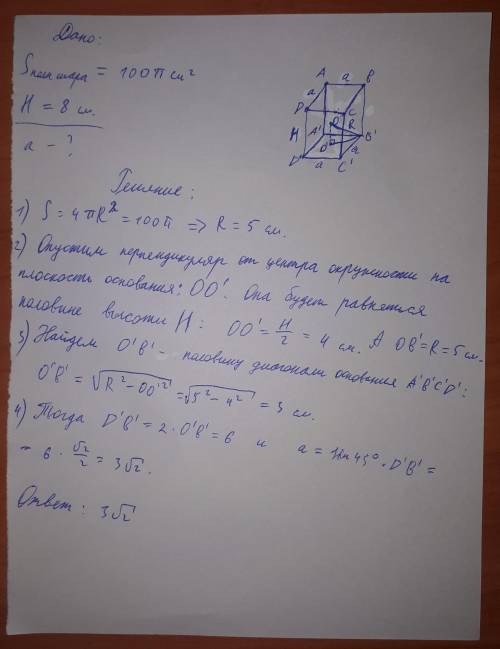 Дано:
S полн шара = 100π см²
H = 8 см.
a - ?
A a B
a
D C R
H A' O B'
O' a
D' a C'
Решение:
1) S = 4πR² = 100π => R = 5 см.
2) Опустим перпендикуляр от центра окружности на
плоскость основания: OO'. Она будет равняться
половине высоты H: OO' = H/2 = 4 см. А OB' = R = 5 см.
3) Найдем O'B' - половину диагонали основания A'B'C'D':
O'B' = √(R² - OO'²) = √(5² - 4²) = 3 см.
4) Тогда D'B' = 2 · O'B' = 6 и a = sin 45° · D'B' =
= 6 · √2/2 = 3√2.
Ответ: 3√2